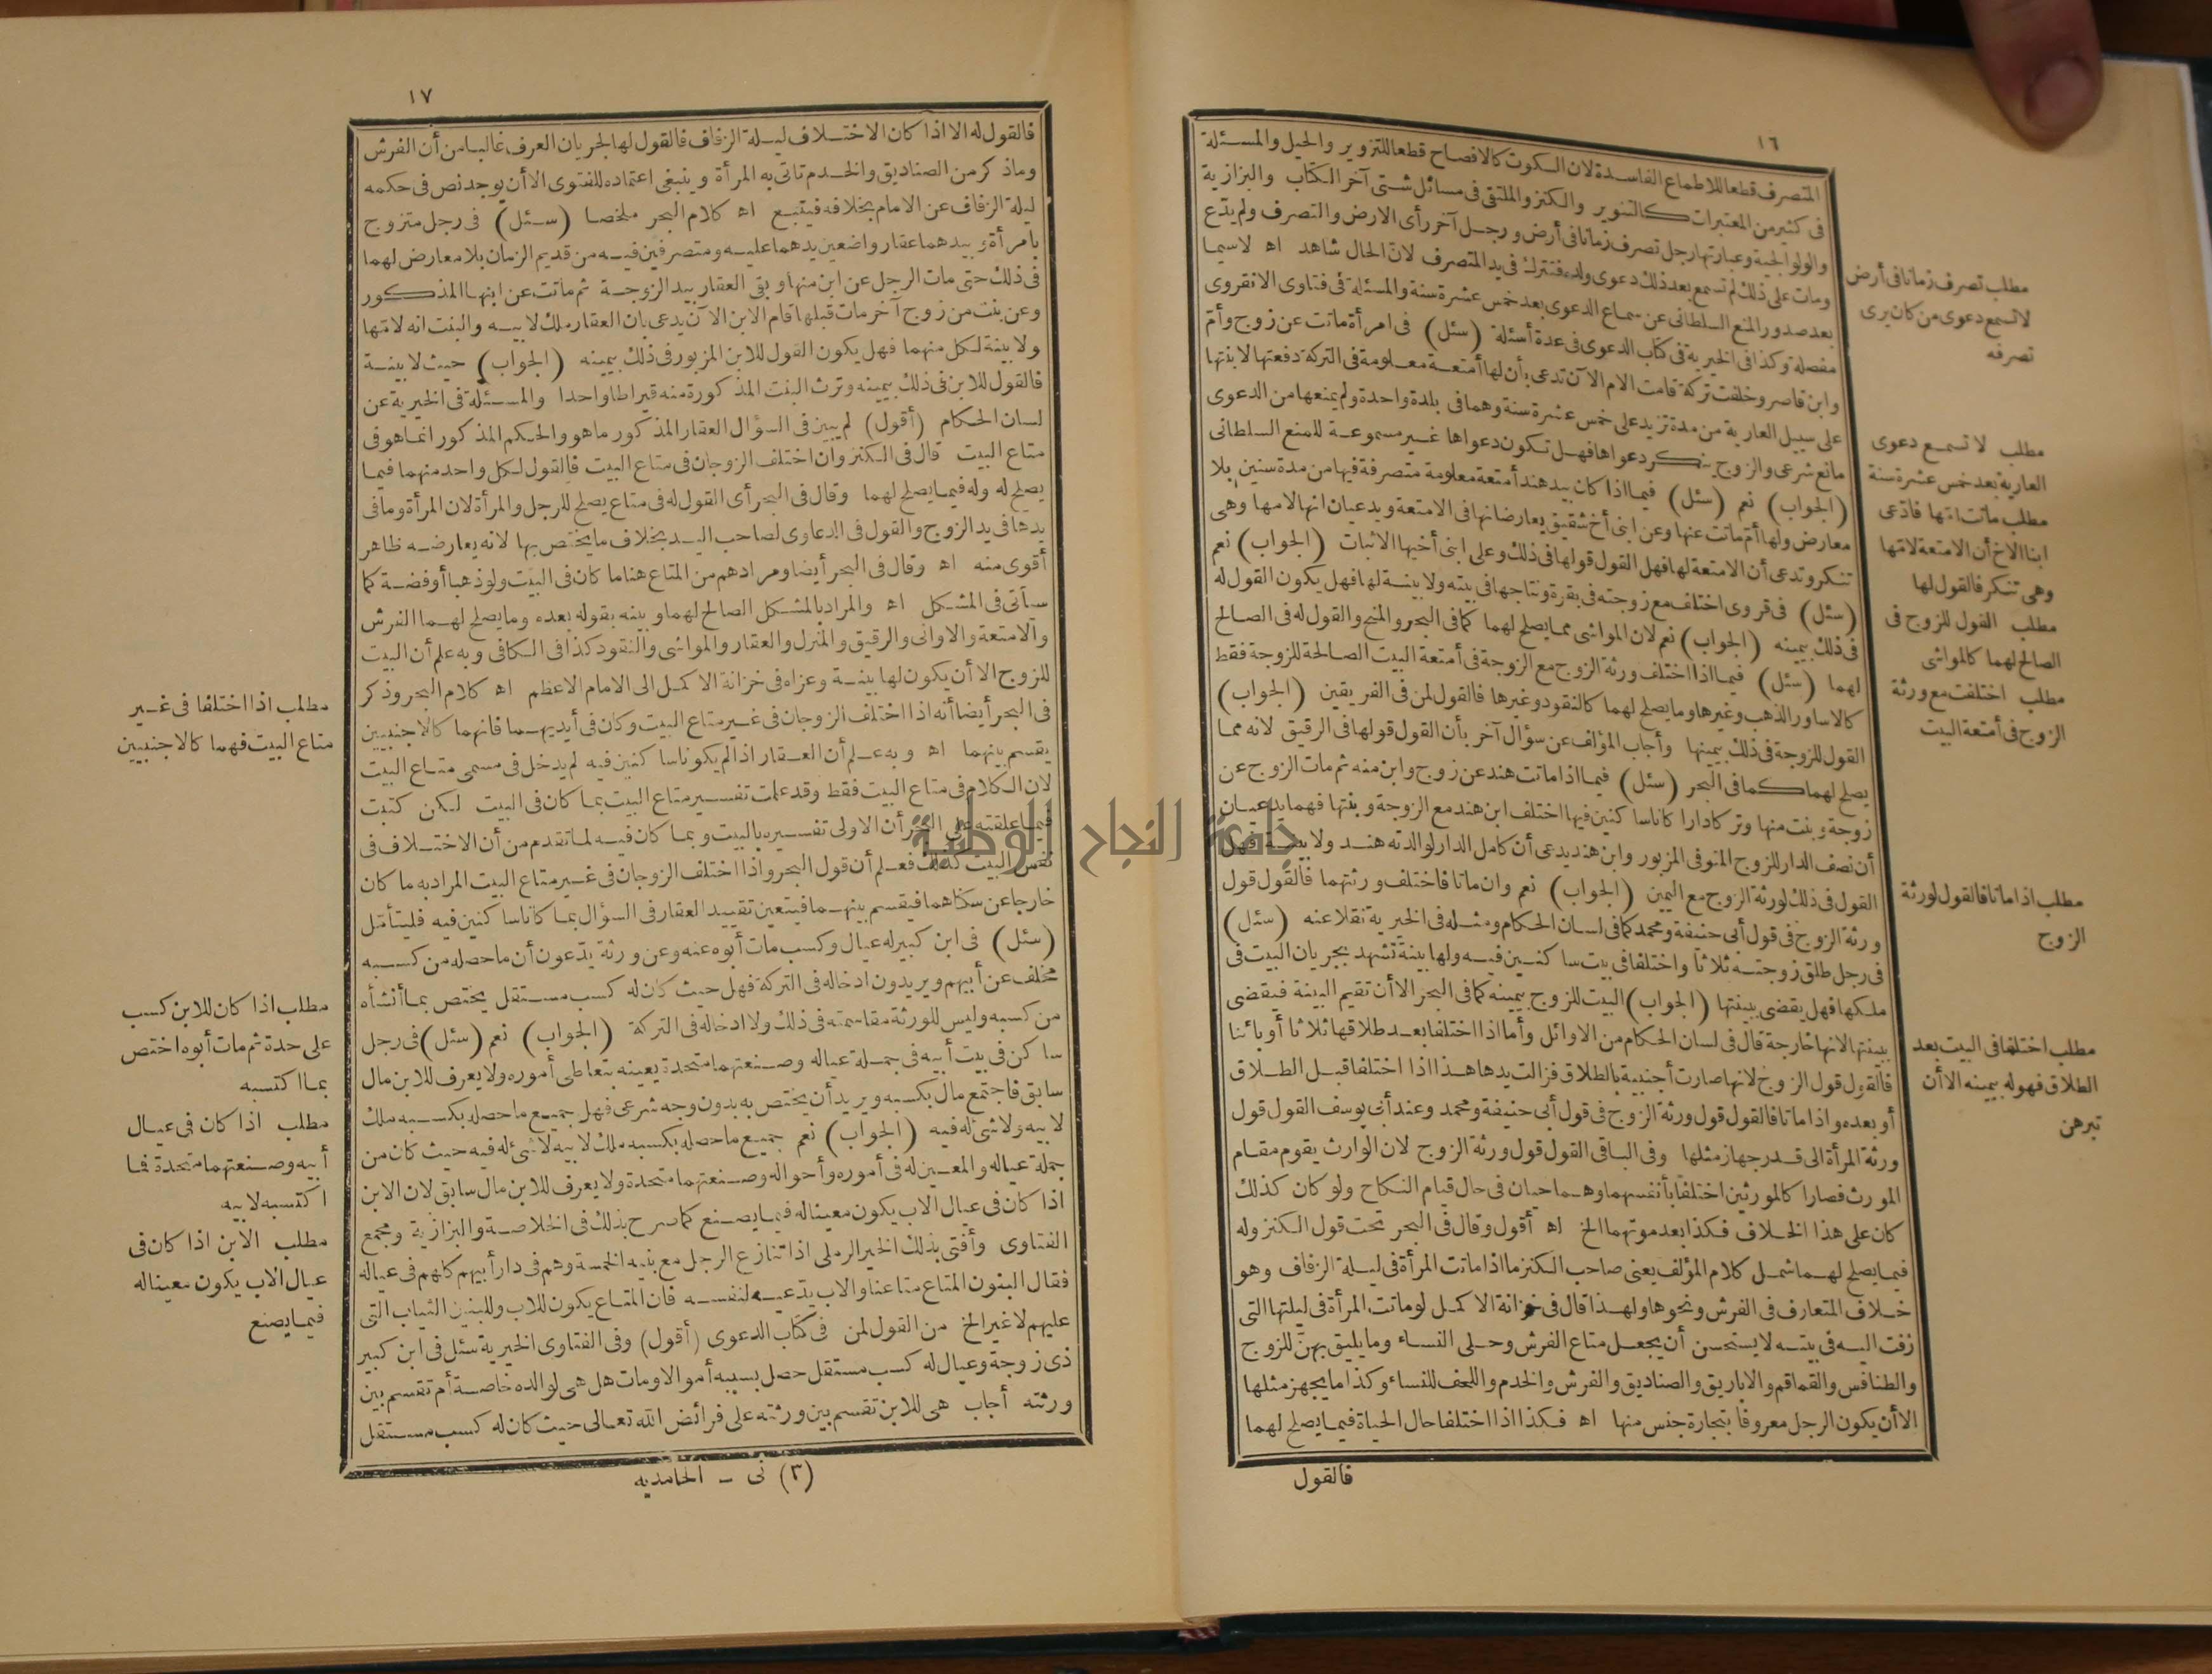 ١٦
المتصرف قطعا للاطماع الفاسدة لان السكوت كالافصاح قطعا للتزوير والحيل والمسئلة
فى كثير من المعتبرات كالتنوير والكنز والملتقى فى مسائل شتى آخر الكتاب والبزازية
والولوالجية وعبارتها رجل تصرف زمانا فى أرض ورجل آخر رأى الارض والتصرف ولم يدّع
ومات على ذلك لم تسمع بعد ذلك دعوى ولده فتترك فى يد المتصرف لان الحال شاهد اه لاسيما
بعد صدور المنع السلطانى عن سماع الدعوى بعد خمس عشرة سنة والمسئلة فى فتاوى الانقروى
مفصلة وكذا فى الخيرية فى كتاب الدعوى فى عدة أسئلة (سئل) فى امرأة ماتت عن زوج وأم
وابن قاصر وخلفت تركة قامت الام الآن تدعى بأن لها أمتعة معلومة فى التركة دفعتها لابنتها
على سبيل العارية من مدة تزيد على خمس عشرة سنة وهما فى بلدة واحدة ولم يمنعها من الدعوى
مانع شرعى والزوج ينكر دعواها فهل تكون دعواها غير مسموعة للمنع السلطانى
(الجواب) نعم (سئل) فيما اذا كان بيد هند أمتعة معلومة متصرفة فيها من مدة سنين بلا
معارض ولها أم ماتت عنها وعن ابنى أخ شقيق يعارضانها فى الامتعة ويدعيان انها لامها وهى
تنكر وتدعى أن الامتعة لها فهل القول قولها فى ذلك وعلى ابنى أخيها الاثبات (الجواب) نعم
(سئل) فى قروى اختلف مع زوجته فى بقرة ونتاجها فى بيته ولا بينة لها فهل يكون القول له
فى ذلك بيمينه (الجواب) نعم لان المواشى مما يصلح لهما كما فى البحر والمنح والقول له فى الصالح
لهما (سئل) فيما اذا اختلف ورثة الزوج مع الزوجة فى أمتعة البيت الصالحة للزوجة فقط
كالاساور الذهب وغيرها وما يصلح لهما كالنقود وغيرها فالقول لمن فى الفريقين (الجواب)
القول للزوجة فى ذلك بيمينها وأجاب المؤلف عن سؤال آخر بأن القول قولها فى الرقيق لانه مما
يصلح لهما كما فى البحر (سئل) فيما اذا ماتت هند عن زوج وابن منه ثم مات الزوج عن
زوجة وبنت منها وتركا دارا كانا ساكنين فيها اختلف ابن هند مع الزوجة وبنتها فهما يدعيان
أن نصف الدار للزوج المتوفى المزبور وابن هند يدعى أن كامل الدار لوالدته هند ولا بينة فهل
القول فى ذلك لورثة الزوج مع اليمين (الجواب) نعم وان ماتا فاختلف ورثتهما فالقول قول
ورثة الزوج فى قول أبى حنيفة ومحمد كما فى لسان الحكام ومثله فى الخيرية نقلا عنه (سئل)
فى رجل طلق زوجته ثلاثا واختلفا فى بيت ساكنين فيه ولها بينة تشهد بجريان البيت فى
ملكها فهل يقضى ببينتها (الجواب) البيت للزوج بيمينه كما فى البحر الا أن تقيم البينة فيقضى
ببينتها لانها خارجة قال فى لسان الحكام من الاوائل وأما اذا اختلفا بعد طلاقها ثلاثا أو بائنا
فالقول قول الزوج لانها صارت أجنبية بالطلاق فزالت يدها هذا اذا اختلفا قبل الطلاق
أو بعده واذا ماتا فالقول قول ورثة الزوج فى قول أبى حنيفة ومحمد وعند أبى يوسف القول قول
ورثة المرأة الى قدر جهاز مثلها وفى الباقى القول قول ورثة الزوج لان الوارث يقوم مقام
المورث فصارا كالمورثين اختلفا بأنفسهما وهما حيان فى حال قيام النكاح ولو كان كذلك
كان على هذا الخلاف فكذا بعد موتهما الخ اه أقول وقال فى البحر تحت قول الكنز وله
فيما يصلح لهما شمل كلام المؤلف يعنى صاحب الكنز ما اذا ماتت المرأة فى ليلة الزفاف وهو
خلاف المتعارف فى الفرش ونحوها ولهذا قال فى خزانة الاكمل لو ماتت المرأة فى ليلتها التى
زفت اليه فى بيته لا يستحسن أن يجعل متاع الفرش وحلى النساء وما يليق بهنّ للزوج
والطنافس والقماقم والاباريق والصناديق والفرش والخدم واللحف للنساء وكذا ما يجهز مثلها
الا أن يكون الرجل معروفا بتجارة جنس منها اه فكذا اذا اختلفا حال الحياة فيما يصلح لهما
فالقول
مطلب تصرف زمانا فى أرض
لا تسمع دعوى من كان يرى
تصرفه
مطلب لا تسمع دعوى
العارية بعد خمس عشرة سنة
مطلب ماتت امّها فادّعى
ابنا الاخ أن الامتعة لامّها
وهى تنكر فالقول لها
مطلب القول للزوج فى
الصالح لهما كالمواشى
مطلب اختلفت مع ورثة
الزوج فى أمتعة البيت
مطلب اذا ماتا فالقول لورثة
الزوج
مطلب اختلفا فى البيت بعد
الطلاق فهو له بيمينه الا أن
تبرهن
١٧
فالقول له الا اذا كان الاختلاف ليلة الزفاف فالقول لها لجريان العرف غالبا من أن الفرش
وما ذكر من الصناديق والخدم تاتى به المرأة وينبغى اعتماده للفتوى الا أن يوجد نص فى حكمه
ليلة الزفاف عن الامام بخلافه فيتبع اه كلام البحر ملخصا (سئل) فى رجل متزوج
بامرأة وبيدهما عقار واضعين يدهما عليه ومتصرفين فيه من قديم الزمان بلا معارض لهما
فى ذلك حتى مات الرجل عن ابن منها وبقى العقار بيد الزوجة ثم ماتت عن ابنها المذكور
وعن بنت من زوج آخر مات قبلها قام الابن الآن يدعى بان العقار ملك لابيه والبنت انه لامّها
ولا بينة لكل منهما فهل يكون القول للابن المزبور فى ذلك بيمينه (الجواب) حيث لا بينة
فالقول للابن فى ذلك بيمينه وترث البنت المذكورة منه قيراطا واحدا والمسئلة فى الخيرية عن
لسان الحكام (أقول) لم يبين فى السؤال العقار المذكور ما هو والحكم المذكور انما هو فى
متاع البيت قال فى الكنز وان اختلف الزوجان فى متاع البيت فالقول لكل واحد منهما فيما
يصلح له وله فيما يصلح لهما وقال فى البحر أى القول له فى متاع يصلح للرجل والمرأة لان المرأة وما فى
يدها فى يد الزوج والقول فى الدعاوى لصاحب اليد بخلاف ما يختص بها لانه يعارضه ظاهر
أقوى منه اه وقال فى البحر أيضا ومرادهم من المتاع هنا ما كان فى البيت ولو ذهبا أو فضة كما
سيأتى فى المشكل اه والمراد بالمشكل الصالح لهما وبينه بقوله بعده وما يصلح لهما الفرش
والامتعة والاوانى والرقيق والمنزل والعقار والمواشى والنقود كذا فى الكافى وبه علم أن البيت
للزوج الا أن يكون لها بينة وعزاه فى خزانة الاكمل الى الامام الاعظم اه كلام البحر وذكر
فى البحر أيضا أنه اذا اختلف الزوجان فى غير متاع البيت وكان فى أيديهما فانهما كالاجنبيين
يقسم بينهما اه وبه علم أن العقار اذا لم يكونا ساكنين فيه لم يدخل فى مسمى متاع البيت
لان الكلام فى متاع البيت فقط وقد علمت تفسير متاع البيت بما كان فى البيت لكن كتبت
فيما علقته على البحر أن الاولى تفسيره بالبيت وبما كان فيه لما تقدم من أن الاختلاف فى
نفس البيت كذلك فعلم أن قول البحر واذا اختلف الزوجان فى غير متاع البيت المراد به ما كان
خارجا عن سكناهما فيقسم بينهما فيتعين تقييد العقار فى السؤال بما كانا ساكنين فيه فليتأمّل
(سئل) فى ابن كبير له عيال وكسب مات أبوه عنه وعن ورثة يدّعون أن ما حصله من كسبه
مخلف عن أبيهم ويريدون ادخاله فى التركة فهل حيث كان له كسب مستقل يختص بما أنشأه
من كسبه وليس للورثة مقاسمته فى ذلك ولا ادخاله فى التركة (الجواب) نعم (سئل) فى رجل
ساكن فى بيت أبيه فى جملة عياله وصنعتهما متحدة يعينه بتعاطى أموره ولا يعرف للابن مال
سابق فاجتمع مال بكسبه ويريد أن يختص به بدون وجه شرعى فهل جميع ما حصله بكسبه ملك
لابيه ولا شئ له فيه (الجواب) نعم جميع ما حصله بكسبه ملك لابيه لا شئ له فيه حيث كان من
جملة عياله والمعين له فى أموره وأحواله وصنعتهما متحدة ولا يعرف للابن مال سابق لان الابن
اذا كان فى عيال الاب يكون معينا له فيما يصنع كما صرح بذلك فى الخلاصة والبزازية ومجمع
الفتاوى وأفتى بذلك الخير الرملى اذا تنازع الرجل مع بنيه الخمسة وهم فى دار أبيهم كلهم فى عياله
فقال البنون المتاع متاعنا والاب يدّعيه لنفسه فان المتاع يكون للاب وللبنين الثياب التى
عليهم لا غير الخ من القول لمن فى كتاب الدعوى (أقول) وفى الفتاوى الخيرية سئل فى ابن كبير
ذى زوجة وعيال له كسب مستقل حصل بسببه أموالا ومات هل هى لوالده خاصة أم تقسم بين
ورثته أجاب هى للابن تقسم بين ورثته على فرائض الله تعالى حيث كان له كسب مستقل
(٣) نى - الحامديه
مطلب اذا اختلفا فى غير
متاع البيت فهما كالاجنبيين
مطلب اذا كان للابن كسب
على حدة ثم مات أبوه اختص
بما اكتسبه
مطلب اذا كان فى عيال
أبيه وصنعتهما متحدة فما
اكتسبه لابيه
مطلب الابن اذا كان فى
عيال الاب يكون معينا له
فيما يصنع
جامعة النجاح الوطنية